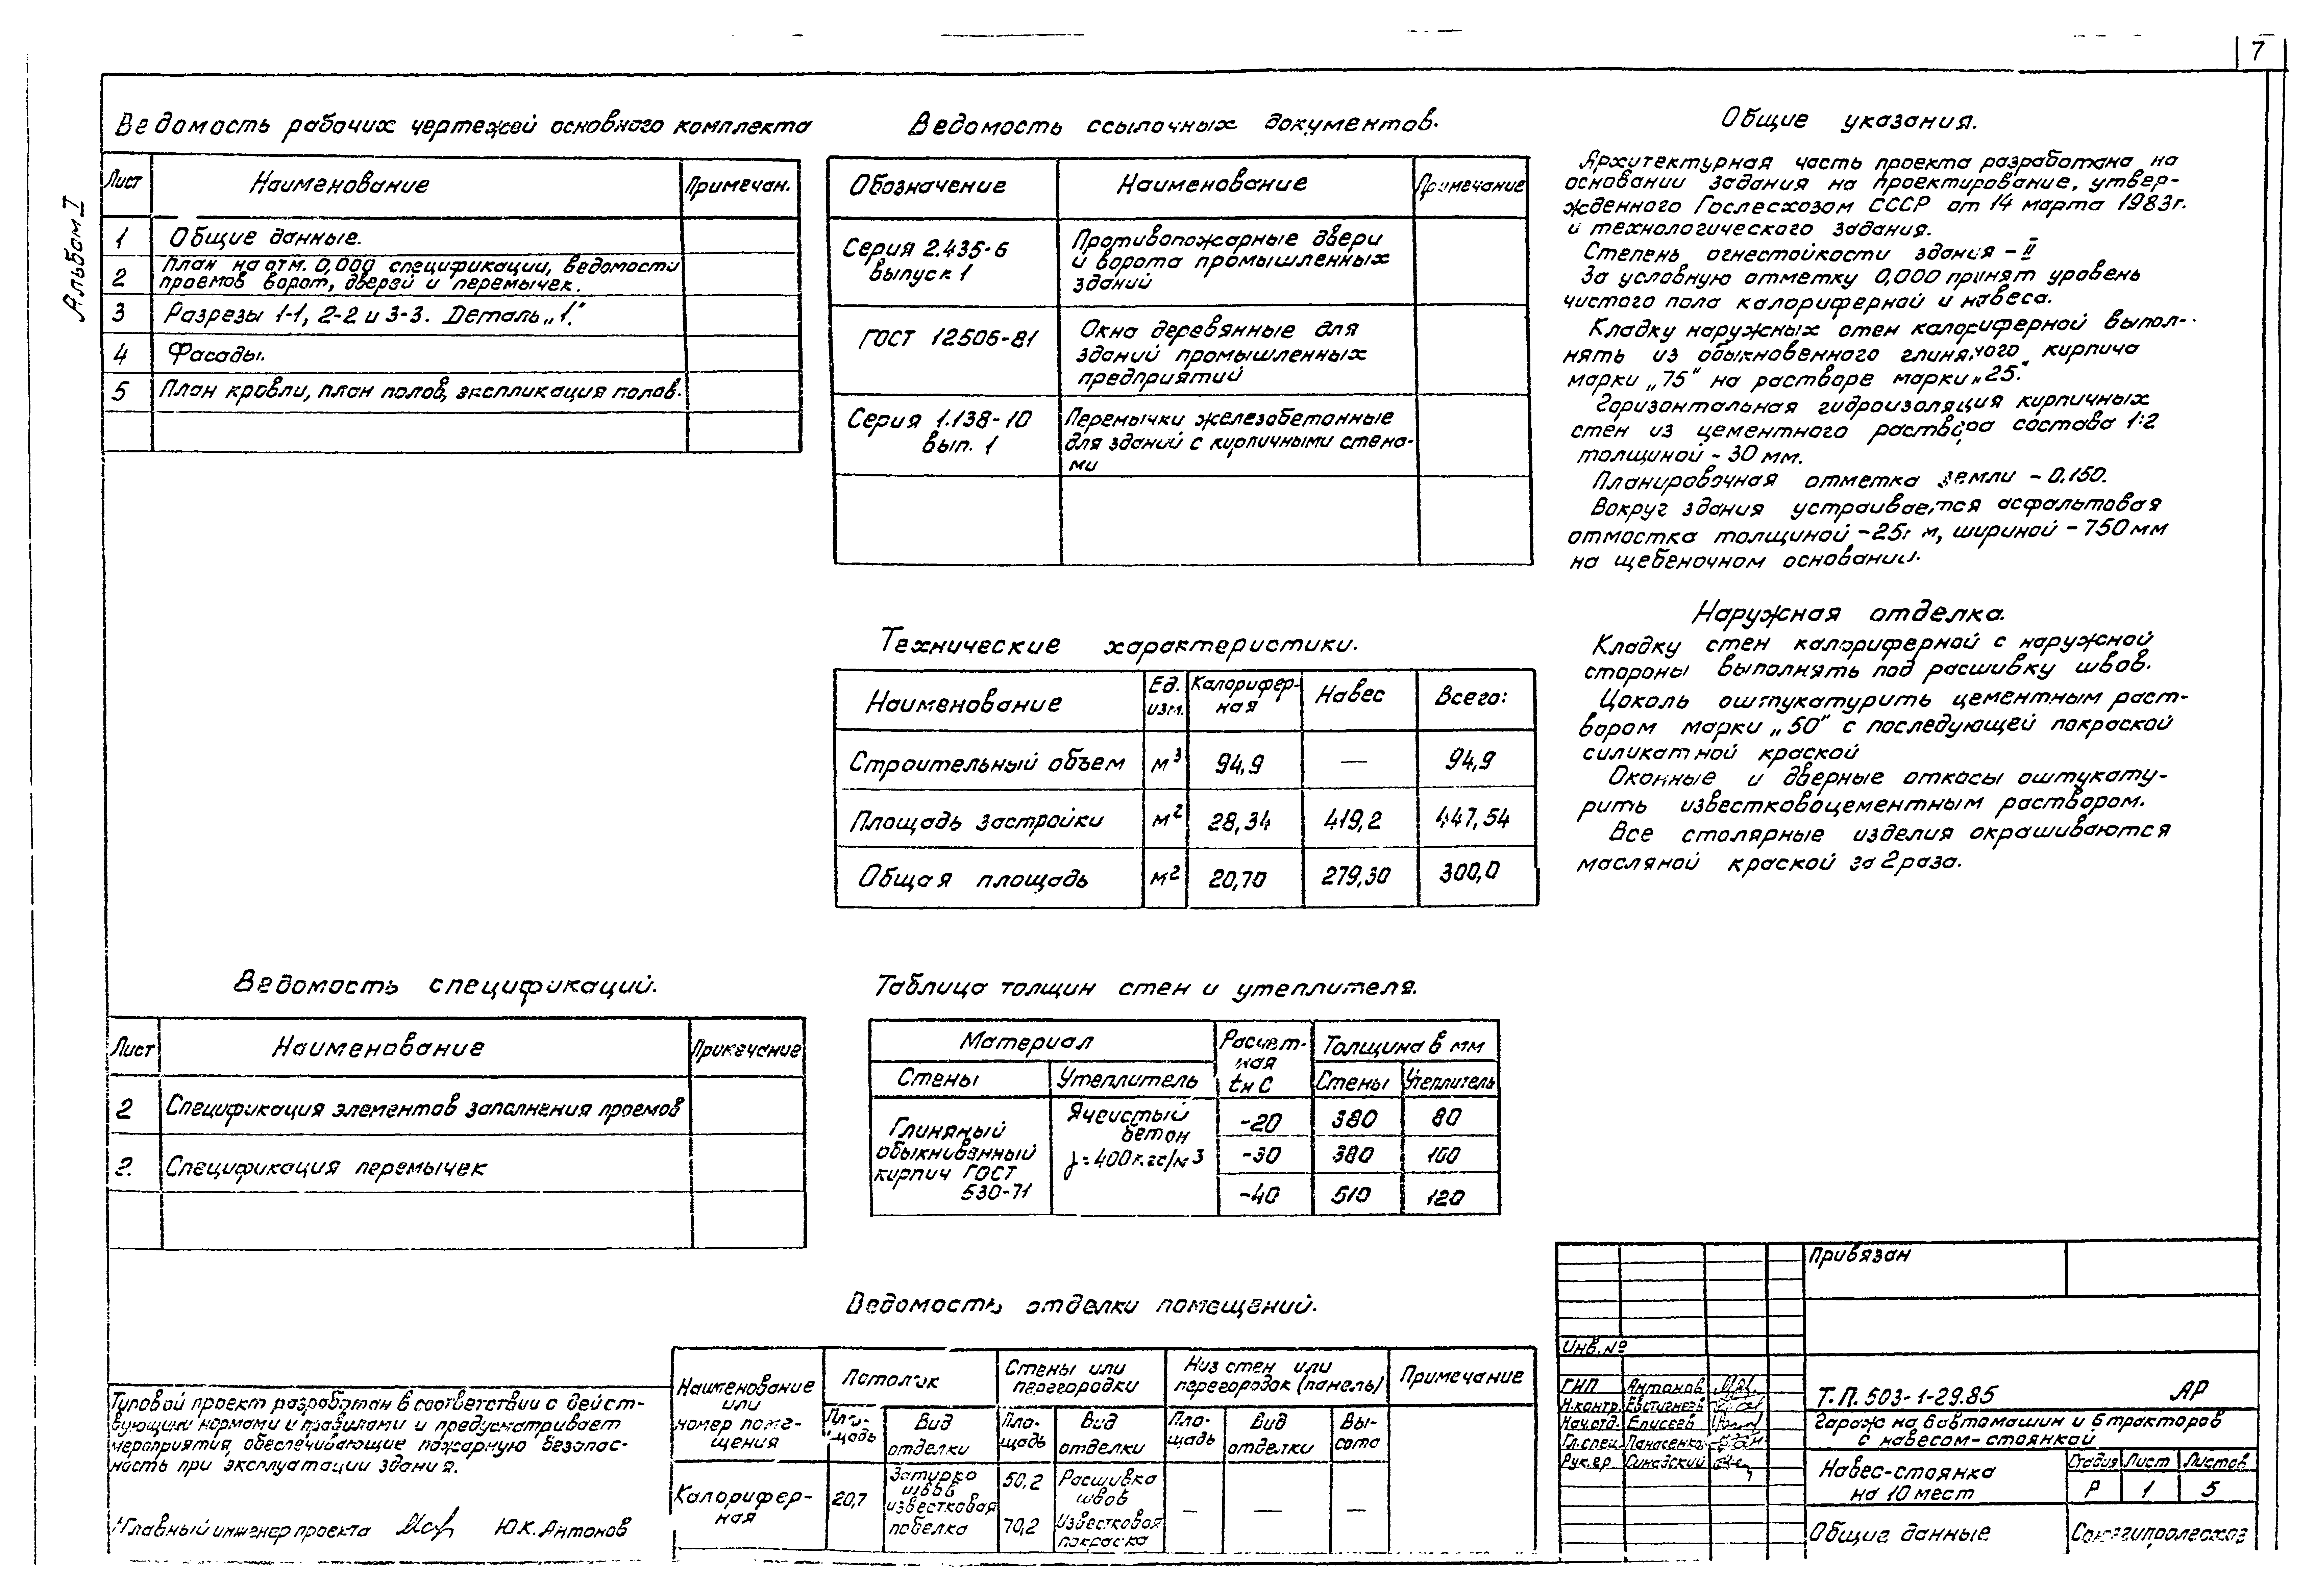 7
Альбом I
Ведомость рабочих чертежей основного комплекта
Лист Наименование Примечан.
1 Общие данные.
2 План на отм. 0,000 спецификации, ведомости
проемов ворот, дверей и перемычек.
3 Разрезы 1-1, 2-2 и 3-3. Деталь „1".
4 Фасады.
5 План кровли, план полов, экспликация полов.
Ведомость ссылочных документов.
Обозначение Наименование Примечание
Серия 2.435-6
выпуск 1
Противопожарные двери
и ворота промышленных
зданий
ГОСТ 12506-81
Окна деревянные для
зданий промышленных
предприятий
Серия 1.138-10
вып. 1
Перемычки железобетонные
для зданий с кирпичными стена-
ми
Общие указания.
Архитектурная часть проекта разработана на
основании задания на проектирование, утвер-
жденного Гослесхозом СССР от 14 марта 1983г.
и технологического задания.
Степень огнестойкости здания – II
За условную отметку 0,000 принят уровень
чистого пола калориферной и навеса.
Кладку наружных стен калориферной выпол-
нять из обыкновенного глиняного кирпича
марки „75" на растворе марки „25".
Горизонтальная гидроизоляция кирпичных
стен из цементного раствора состава 1:2
толщиной - 30 мм.
Планировочная отметка земли - 0,150.
Вокруг здания устраивается асфальтовая
отмостка толщиной - 25 м, шириной - 750 мм
на щебеночном основании.
Наружная отделка.
Кладку стен калориферной с наружной
стороны выполнять под расшивку швов.
Цоколь оштукатурить цементным раст-
вором марки „50" с последующей покраской
силикатной краской
Оконные и дверные откосы оштукату-
рить известковоцементным раствором.
Все столярные изделия окрашиваются
масляной краской за 2 раза.
Технические характеристики.
Наименование Ед. изм. Калорифер-
ная Навес Всего:
Строительный объем м³ 94,9 — 94,9
Площадь застройки м² 28,34 419,2 447,54
Общая площадь м² 20,70 279,30 300,0
Ведомость спецификаций.
Лист Наименование Примечание
2 Спецификация элементов заполнения проемов
2. Спецификация перемычек
Таблица толщин стен и утеплителя.
Материал Расчет-
ная
tн С Толщина в мм
Стены Утеплитель Стены Утеплитель
Глиняный
обыкнивенный
кирпич ГОСТ
530-71
Ячеистый
бетон
γ=400кгс/м³
-20 380 80
-30 380 100
-40 510 120
Ведомость отделки помещений.
Наименование
или
номер поме-
щения
Потолок
Стены или
перегородки
Низ стен или
перегородок (панель)
Примечание
Пло-
щадь Вид
отделки Пло-
щадь Вид
отделки Пло-
щадь Вид
отделки Вы-
сота
Калорифер-
ная
20,7
Затирка
швов
известковая
побелка
50,2 Расшивка
швов
70,2 Известковая
покраска
— — —
Типовой проект разработан в соответствии с дейст-
вующими нормами и правилами и предусматривает
мероприятия, обеспечивающие пожарную безопас-
ность при эксплуатации здания.
Главный инженер проекта Ю.К. Антонов
Привязан
Инв. №
ГИП Антонов
Н.контр. Евстигнеев
Нач.отд. Елисеев
Гл.спец. Панасенко
Рук.гр. Синодский
Т.П. 503-1-29.85 АР
Гараж на 6 автомашин и 6 тракторов
с навесом-стоянкой
Навес-стоянка
на 10 мест
Стадия Лист Листов
Р 1 5
Общие данные
Союзгипролесхоз